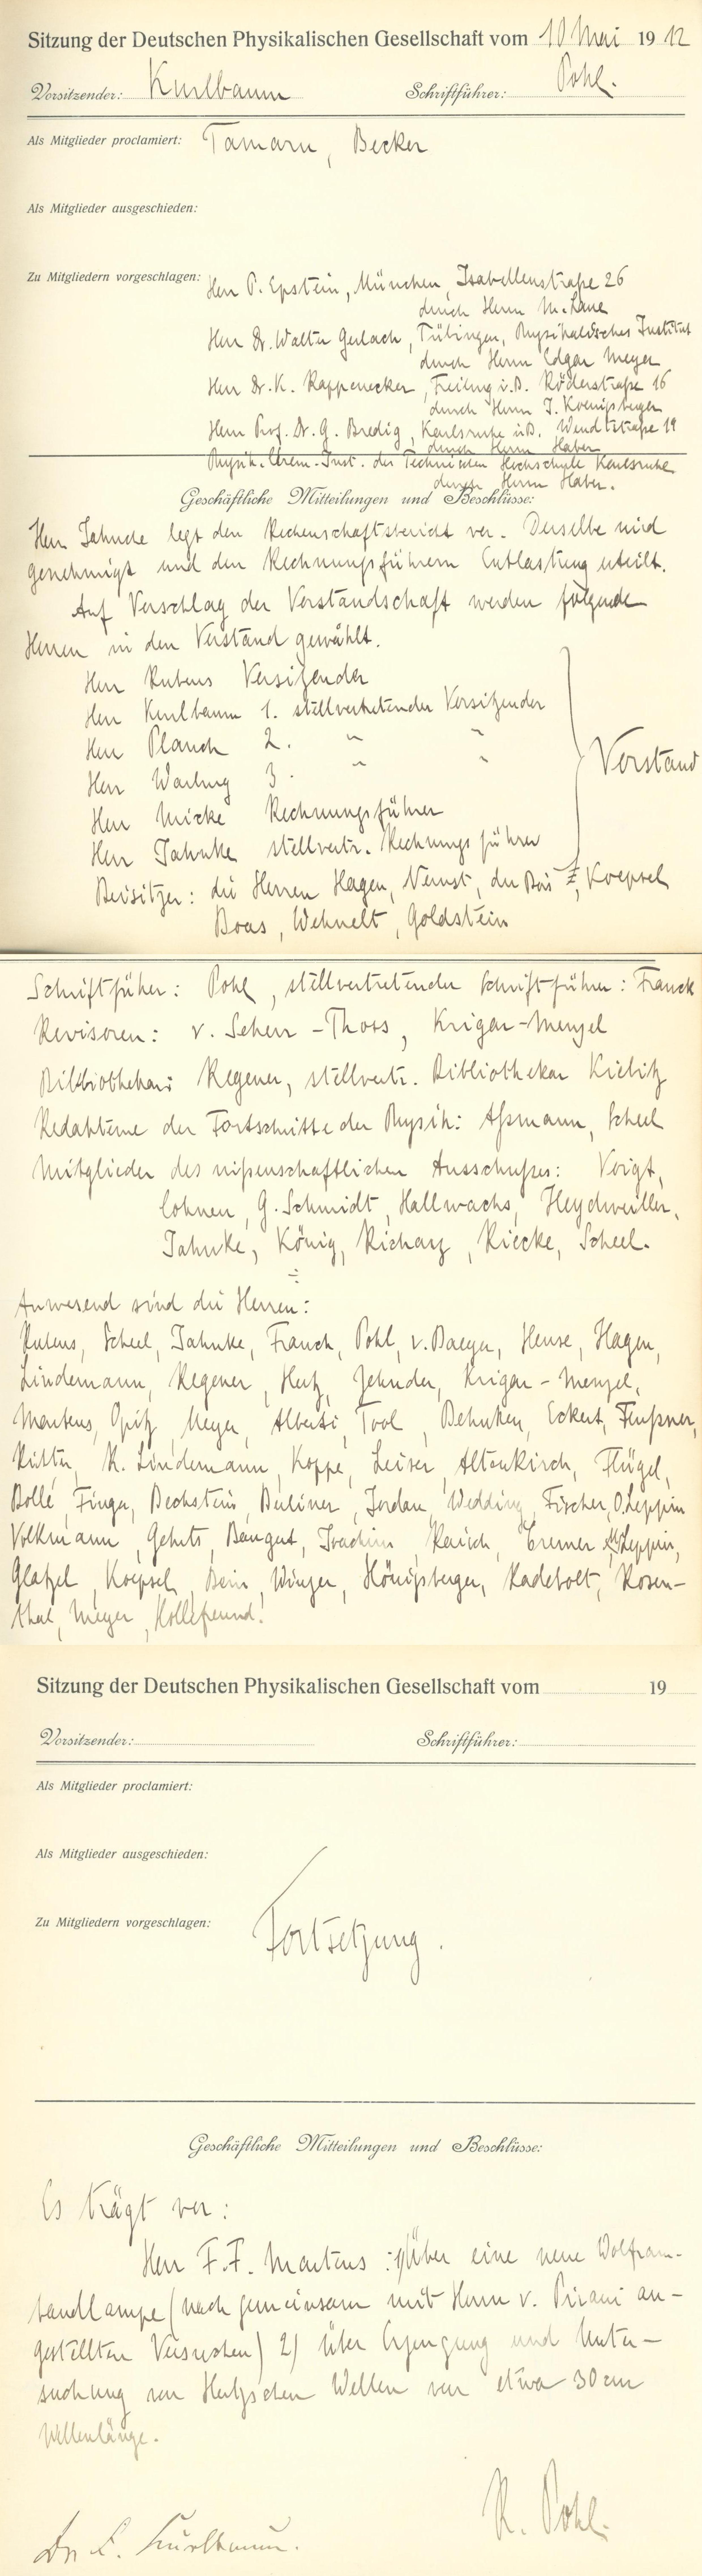 Sitzung der Deutschen Physikalischen Gesellschaft vom 10 Mai 1912
Vorsitzender: Kurlbaum Schriftführer: Pohl.
Als Mitglieder proclamiert: Tamaru, Becker
Als Mitglieder ausgeschieden:
Zu Mitgliedern vorgeschlagen: Herr P. Epstein, München, Isabellenstraße 26
durch Herrn M. Laue
Herr Dr. Walter Gerlach, Tübingen, Physikalisches Institut
durch Herrn Edgar Meyer
Herr Dr. K. Rappenecker, Freiburg i.B. Röderstraße 16
durch Herrn J. Koenigsberger
Herr Prof. Dr. G. Bredig, Karlsruhe i.B. Wendtstraße 19
durch Herrn Haber
Physik.-Chem.-Inst. der Technischen Hochschule Karlsruhe
durch Herrn Haber.
Geschäftliche Mitteilungen und Beschlüsse:
Herr Jahnke legt den Rechenschaftsbericht vor. Derselbe wird
genehmigt und den Rechnungsführern Entlastung erteilt.
Auf Vorschlag der Vorstandschaft werden folgende
Herren in den Vorstand gewählt.
Herr Rubens Vorsitzender
Herr Kurlbaum 1. stellvertretender Vorsitzender
Herr Planck 2. " "
Herr Warburg 3. " "
Herr Micke Rechnungsführer
Herr Jahnke stellvertr. Rechnungsführer
Vorstand
Beisitzer: die Herren Hagen, Nernst, du Bois, Koepsel
Boas, Wehnelt, Goldstein
Schriftführer: Pohl, stellvertretender Schriftführer: Franck
Revisoren: v. Scherr-Thoss, Krigar-Menzel
Bibliothekar: Regener, stellvertr. Bibliothekar Kiebitz
Redakteure der Fortschritte der Physik: Aßmann, Scheel
Mitglieder des wißenschaftlichen Ausschußes: Voigt,
Cohnen, G. Schmidt, Hallwachs, Heydweiller,
Jahnke, König, Richarz, Riecke, Scheel.
÷
Anwesend sind die Herren:
Rubens, Scheel, Jahnke, Franck, Pohl, v. Baeyer, Heuse, Hagen,
Lindemann, Regener, Hertz, Zehnder, Krigar-Menzel,
Martens, Opitz, Meyer, Alberti, Tool, Behnken, Eckert, Feußner,
Ritter, K. Lindemann, Koppe, Leiser, Altenkirch, Flügel,
Bollé, Finger, Bechstein, Berliner, Jordan, Wedding, Fischer, O. Leppin
Volkmann, Gehrts, Bangert, Joachim, Rausch, Cremer, Leppin,
Glatzel, Koepsel, Bein, Winzer, Hönigsberger, Radebolt, Rosen-
thal, Meyer, Hollefreund!
Sitzung der Deutschen Physikalischen Gesellschaft vom 19
Vorsitzender: Schriftführer:
Als Mitglieder proclamiert:
Als Mitglieder ausgeschieden:
Zu Mitgliedern vorgeschlagen:
Fortsetzung.
Geschäftliche Mitteilungen und Beschlüsse:
Es trägt vor:
Herr F.F. Martens: 1) Über eine neue Wolfram-
bandlampe (nach gemeinsam mit Herrn v. Pirani an-
gestellten Versuchen) 2) über Erzeugung und Unter-
suchung von Hertzschen Wellen von etwa 30 cm
Wellenlänge.
R. Pohl.
Kurlbaum.